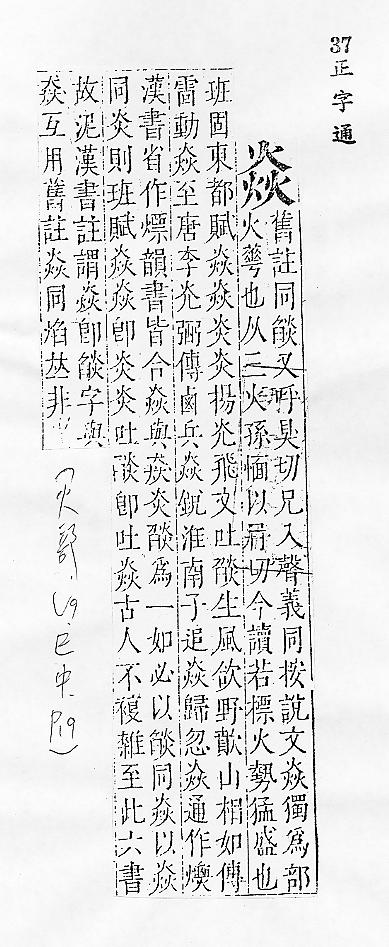 37正字通
焱
舊註同燄又呼狊切兄入聲義同按說文焱獨爲部
火蕐也从三火孫愐以冉切今讀若標火勢猛盛也
班固東都賦焱焱炎炎揚光飛文吐燄生風飲野歕山相如傳
雷動焱至唐李光弼傳鹵兵焱銳淮南子追焱歸忽焱通作熛
漢書省作熛韻書皆合焱與猋炎燄為一如必以燄同焱以焱
同炎則班賦焱焱卽炎炎吐燄卽吐焱古人不複雜至此六書
故泥漢書註謂焱卽燄字與
猋互用舊註焱同焰𠀤非
(火部.U9.巳中.P19)